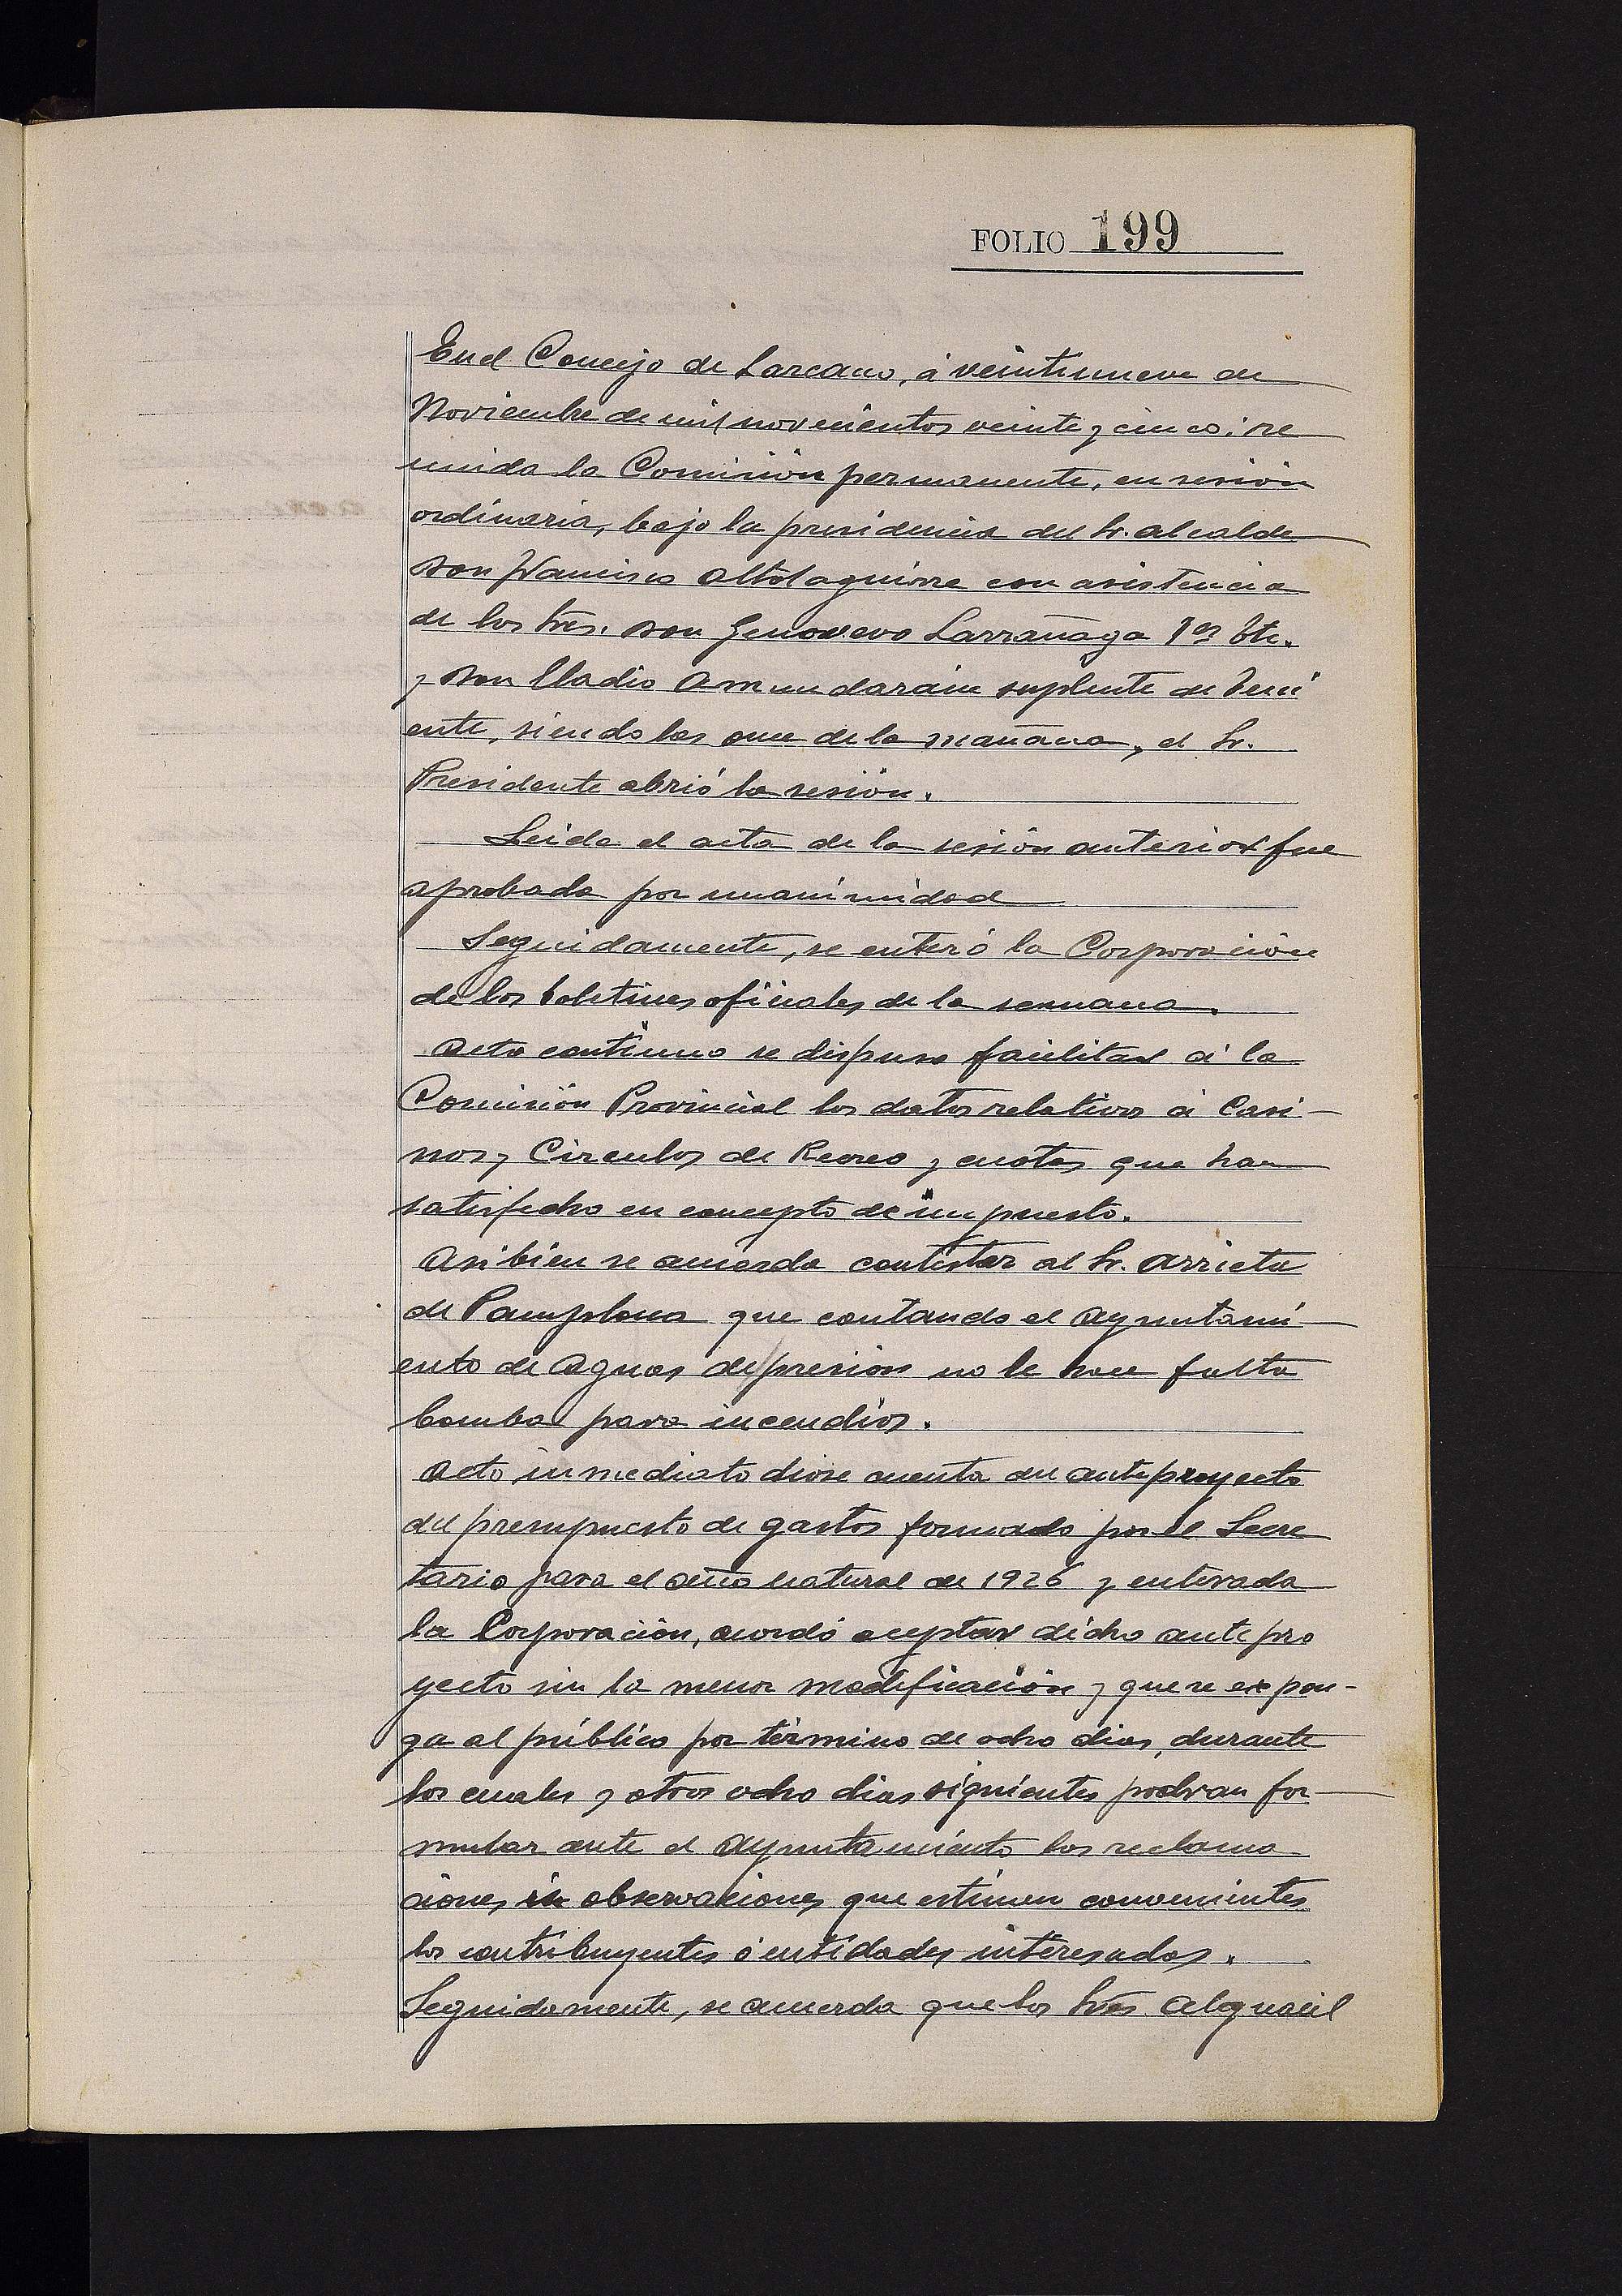 FOLIO 199
En el Concejo de Lazcano, á veintinueve de
Noviembre de mil novecientos veinte y cinco: re
unida la Comisión permanente, en sesión
ordinaria, bajo la presidencia del Sr. Alcalde
Don Francisco Altolaguirre con asistencia
de los Sres. Don Genovevo Larrañaga 1er Tte.
y Don Eladio Amundarain suplente de Teni
ente, siendo las once de la mañana, el Sr.
Presidente abrió la sesión.
Leida el acta de la sesión anterior fue
aprobada por unanimidad
Seguidamente, se enteró la Corporación
de los boletines oficiales de la semana.
Acto continuo se dispuso facilitar á la
Comisión Provincial los datos relativos á Casi-
nos y Circulos de Recreo y cuotas que han
satisfecho en concepto de impuesto.
Asi bien se acuerda contestar al Sr. Arrieta
de Pamplona que contando el Ayuntami-
ento de Aguas de presión no le hace falta
bomba para incendios.
Acto inmediato dióse cuenta del anteproyecto
del presupuesto de gastos formado por el Secre
tario para el año natural de 1926 y enterada
la Corporación, acordó aceptar dicho antepro
yecto sin la menor modificación y que se expon-
ga al público por término de ocho dias, durante
los cuales y otros ocho dias siguientes podran for-
mular ante el Ayuntamiento las reclama
ciones observaciones que estimen convenientes
los contribuyentes ó entidades interesadas.
Seguidamente, se acuerda que los Sres Alguacil